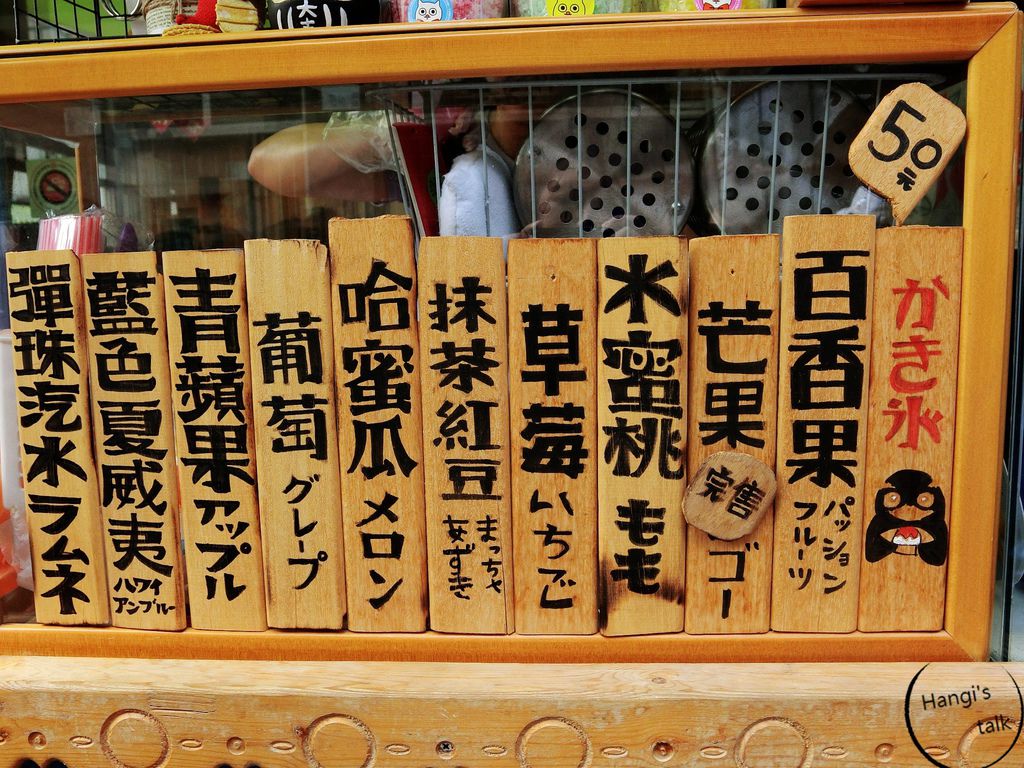 50元
かき氷
百香果 パッション
フルーツ
芒果 ゴー
完售
水蜜桃 もも
草莓 いちご
抹茶紅豆 まっちゃ
あずき
哈蜜瓜 メロン
葡萄 グレープ
青蘋果 アップル
藍色夏威夷 ハワイ
アンブルー
彈珠汽水 ラムネ
Hangi's
talk